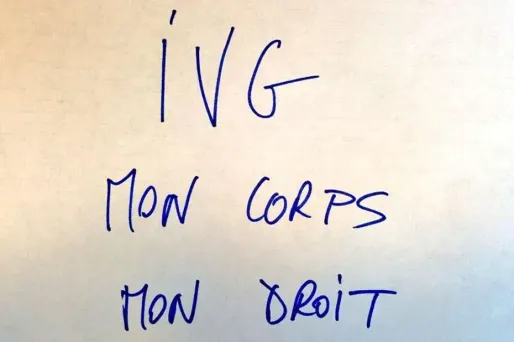 iVG
MON CORPS
MON DROiT